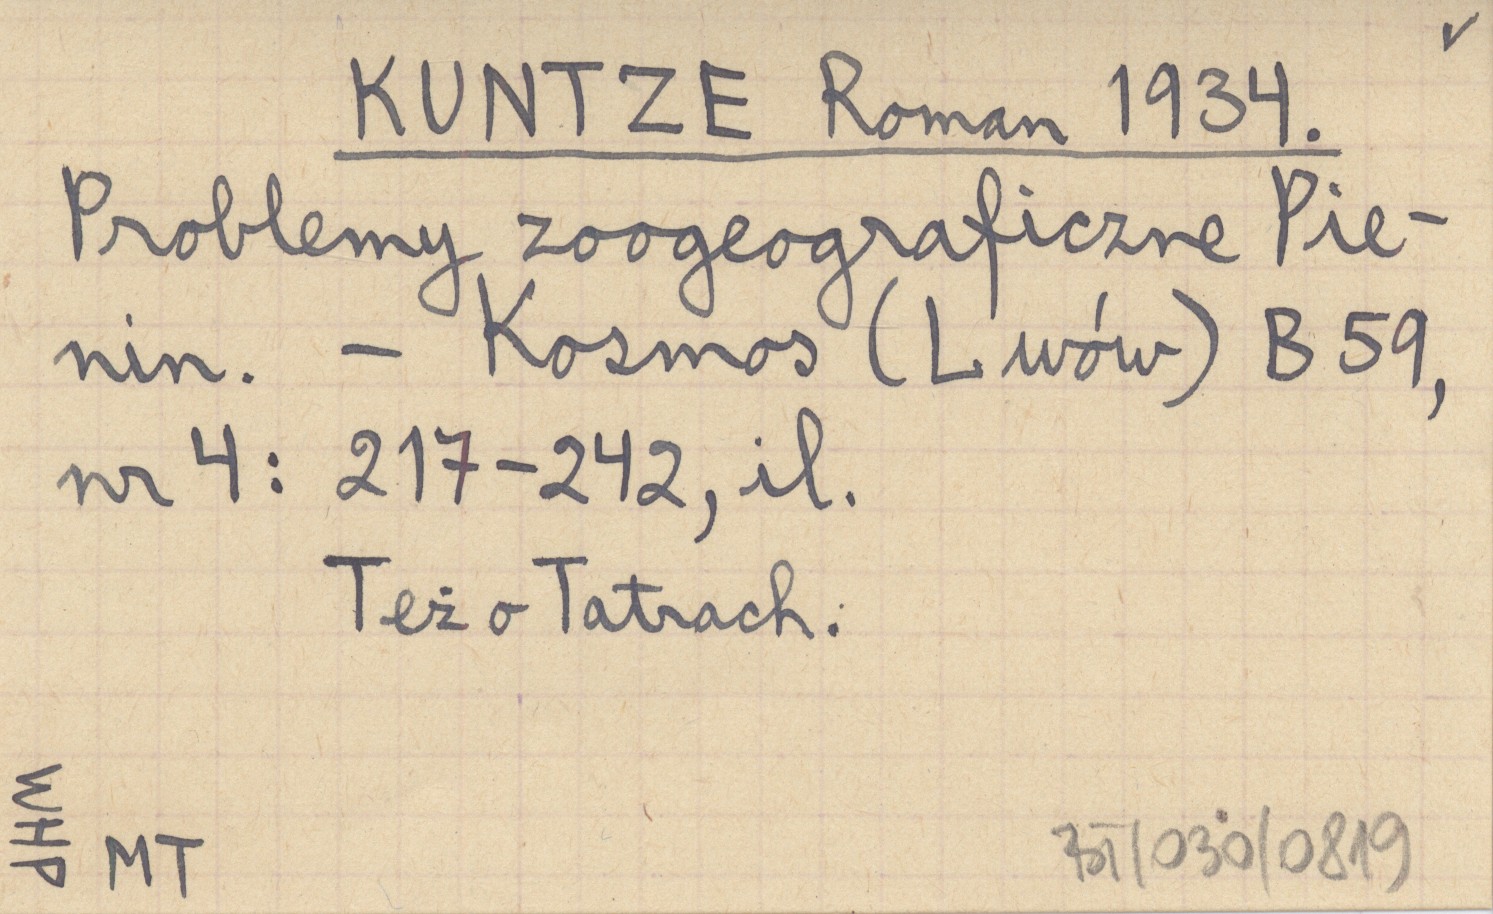 KUNTZE Roman 1934.
Problemy zoogeograficzne Pie-
nin. – Kosmos (Lwów) B 59,
nr 4: 217–242, il.
Też o Tatrach.
WHP
MT
/030/0819